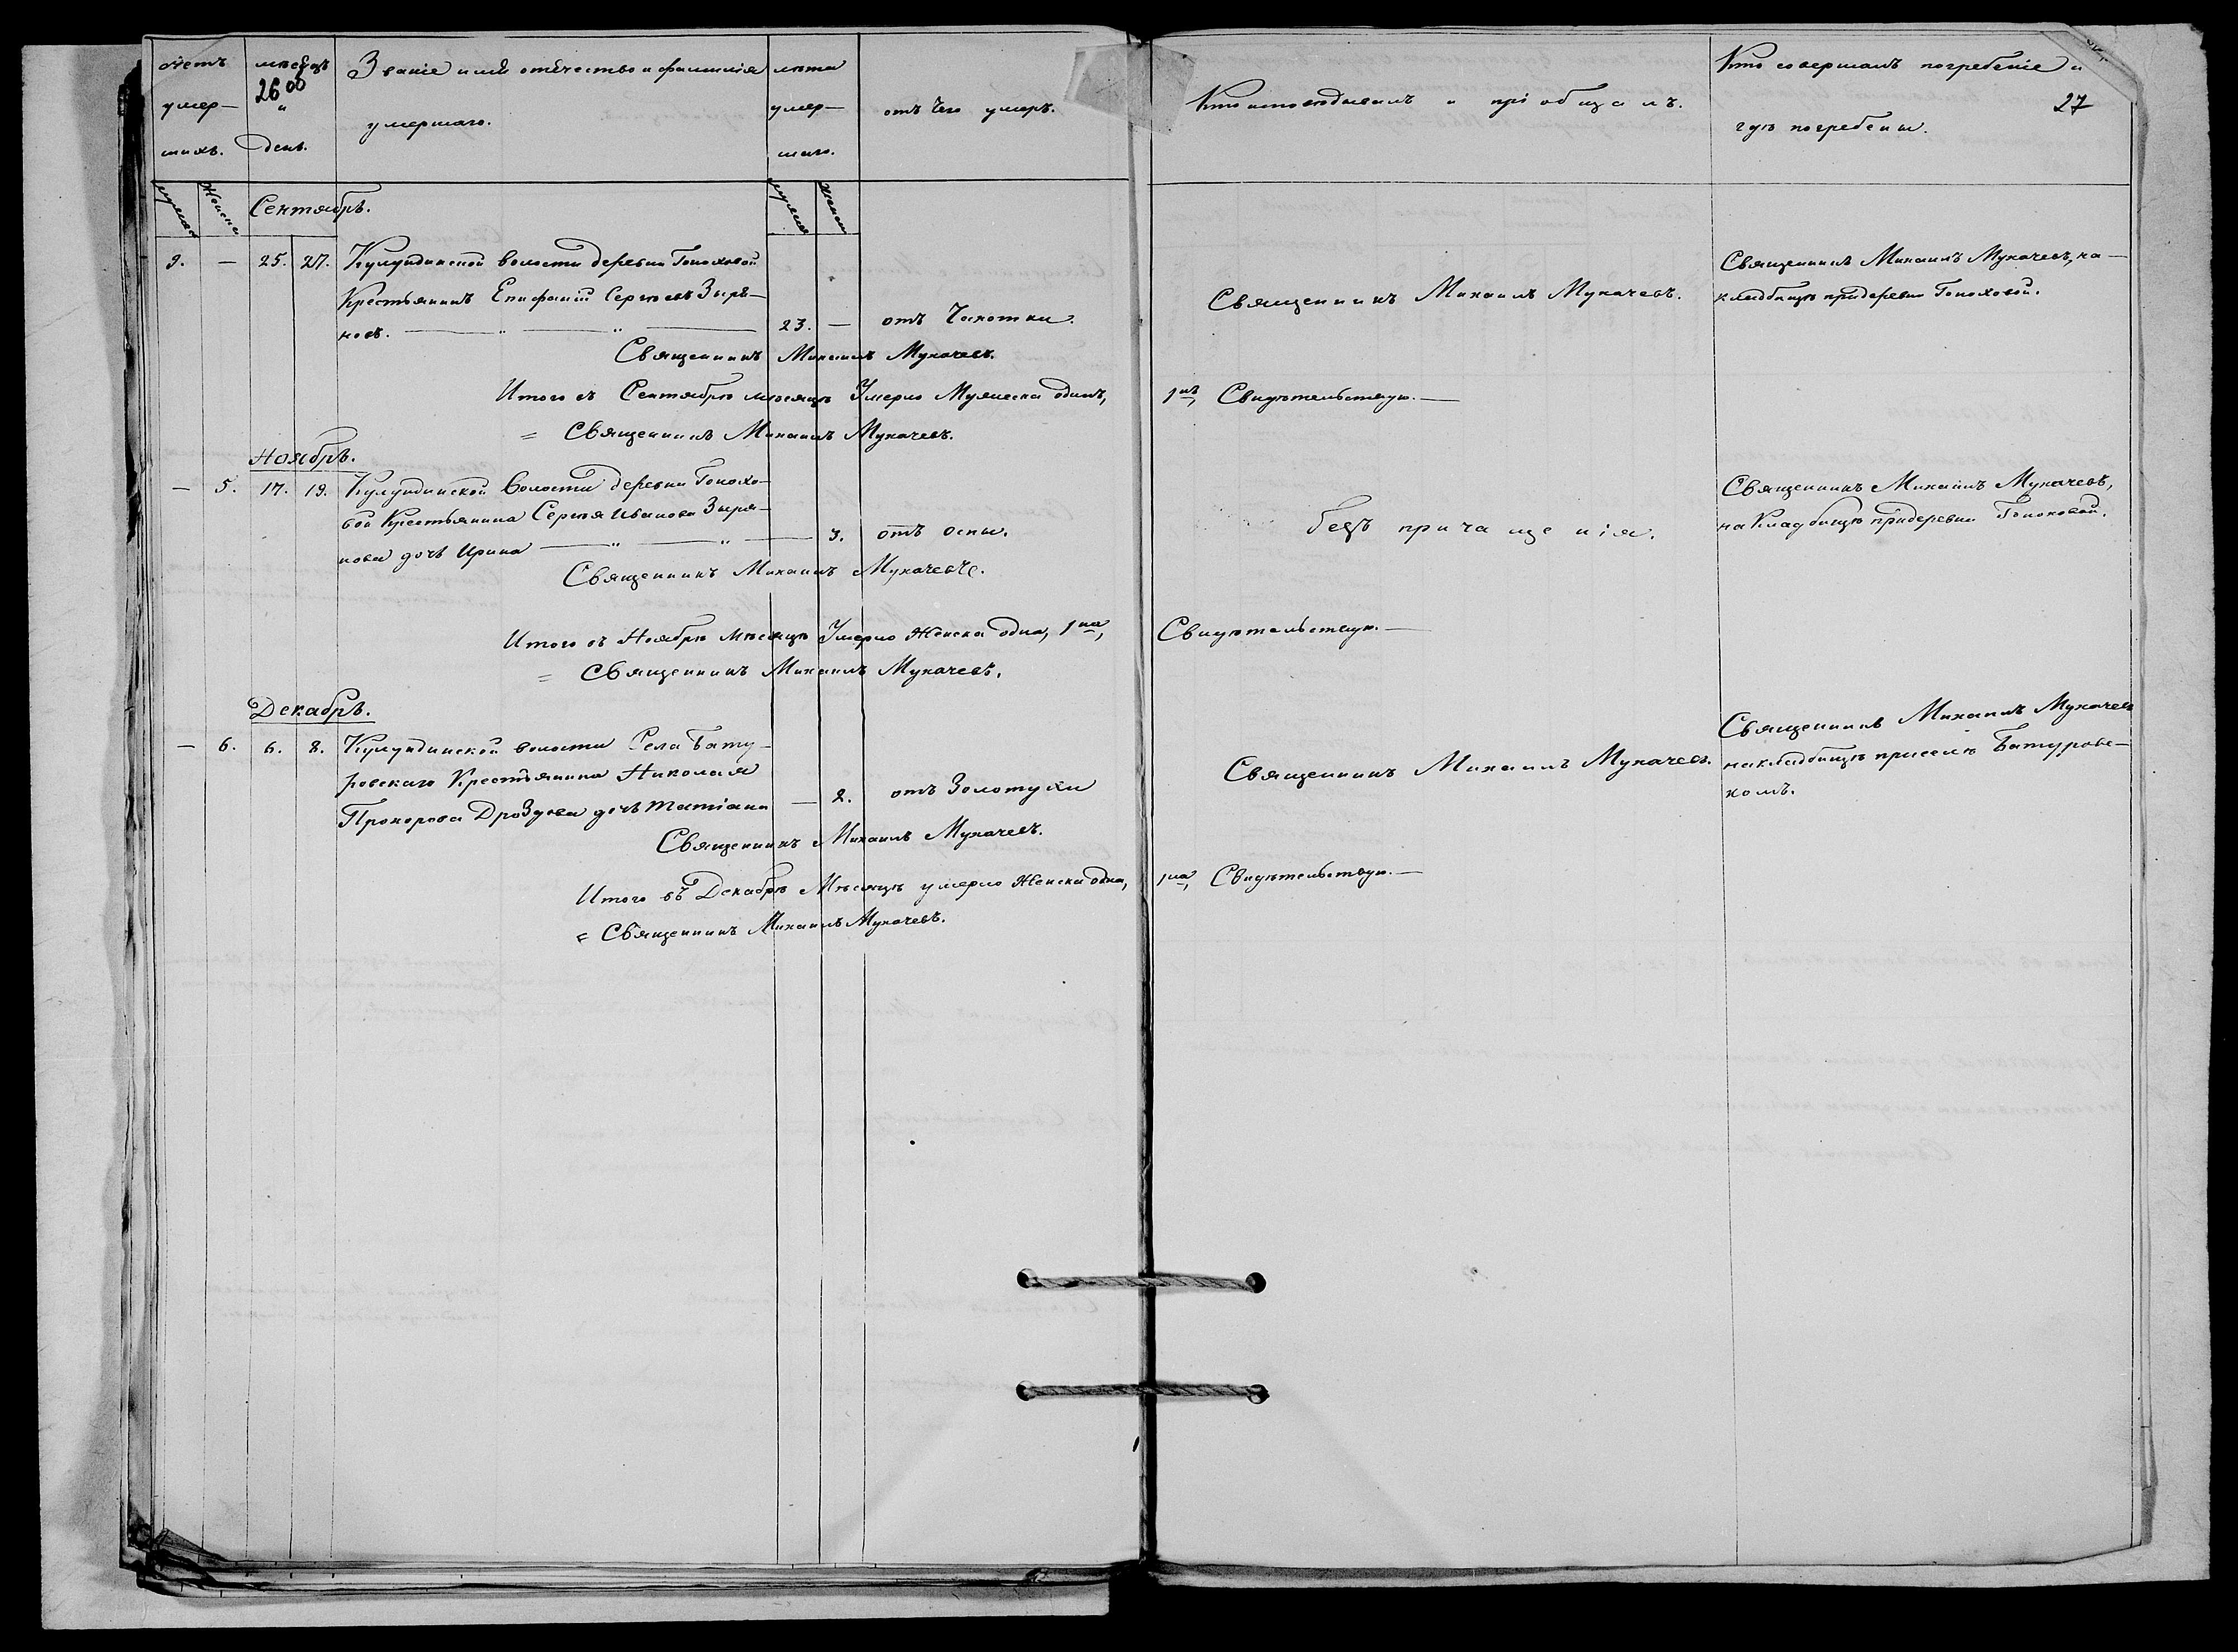 счетъ умер-шихъ.
мѣсяцъ и день.
26 об
Званіе имя отечество и фамилія умершаго.
лѣта умер-шаго.
отъ чего умеръ.
Кто исповѣдывалъ и пріобщалъ.
Кто совершалъ погребеніе и гдѣ погребены.
27
мужеска
женска
Сентябрь.
мужеска
женска
9. — 25. 27. Кулундинской волости деревни Гоноховой
Крестьянинъ Епифаній Сергѣевъ Зыря-
новъ. — " — " — 23. — отъ Чахотки.
Священникъ Михаилъ Мукачевъ.
Священникъ Михаилъ Мукачевъ, на
кладбищѣ при деревнѣ Гоноховой.
Священникъ Михаилъ Мукачевъ.
Итого въ Сентябрѣ мѣсяцѣ Умерло Мужеска одинъ, 1нъ, Свидѣтельствую. —
= Священникъ Михаилъ Мукачевъ.
Ноябрь.
— 5. 17. 19. Кулундинской волости деревни Гонохо-
вой Крестьянина Сергѣя Иванова Зыря-
нова дочь Ирина — " — " — 3. отъ оспы.
безъ причащенія.
Священникъ Михаилъ Мукачевъ,
на Кладбищѣ при деревнѣ Гоноховой.
Священникъ Михаилъ Мукачевъ.
Итого въ Ноябрѣ Мѣсяцѣ Умерло Женска одна, 1на, Свидѣтельствую. —
= Священникъ Михаилъ Мукачевъ.
Декабрь.
— 6. 6. 8. Кулундинской волости Села Бату-
ровскаго Крестьянина Николая
Прохорова Дроздова дочь Татіана — 2. отъ Золотухи
Священникъ Михаилъ Мукачевъ.
Священникъ Михаилъ Мукачевъ
на кладбищѣ при селѣ Батуровс-
комъ.
Священникъ Михаилъ Мукачевъ.
Итого въ Декабрѣ Мѣсяцѣ умерло Женска одна, 1на, Свидѣтельствую. —
= Священникъ Михаилъ Мукачевъ.